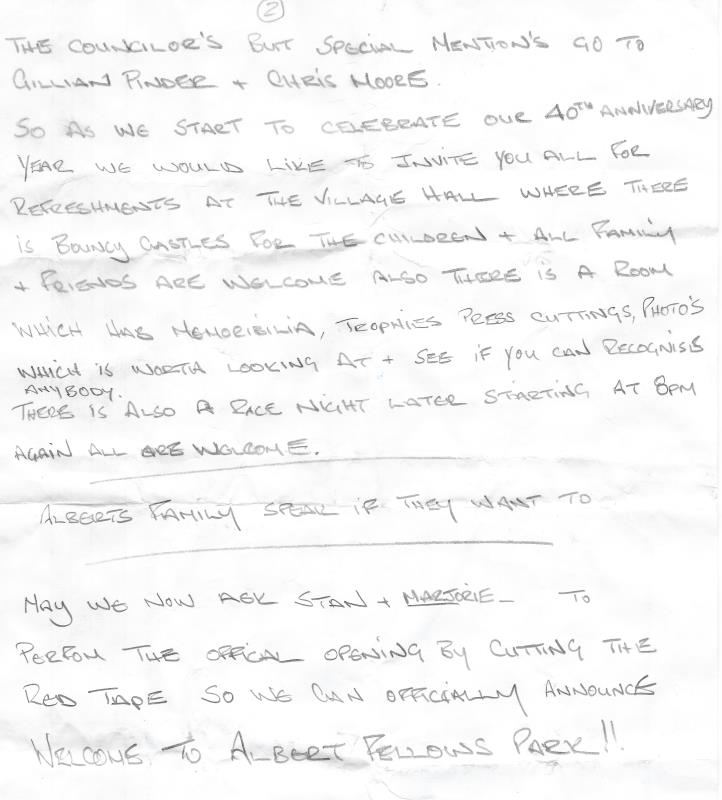 2
THE COUNCILOR'S BUT SPECIAL MENTION'S GO TO
GILLIAN PINDER + CHRIS MOORE.
SO AS WE START TO CELEBRATE OUR 40TH ANNIVERSARY
YEAR WE WOULD LIKE TO INVITE YOU ALL FOR
REFRESHMENTS AT THE VILLAGE HALL WHERE THERE
IS BOUNCY CASTLES FOR THE CHILDREN + ALL FAMILY
+ FRIENDS ARE WELCOME ALSO THERE IS A ROOM
WHICH HAS MEMORIBILIA, TROPHIES PRESS CUTTINGS, PHOTO'S
WHICH IS WORTH LOOKING AT + SEE IF YOU CAN RECOGNISE
ANYBODY.
THERE IS ALSO A RACE NIGHT LATER STARTING AT 8PM
AGAIN ALL ARE WELCOME.
ALBERTS FAMILY SPEAK IF THEY WANT TO
MAY WE NOW ASK STAN + MARJORIE - TO
PERFOM THE OFFICAL OPENING BY CUTTING THE
RED TAPE SO WE CAN OFFICIALLY ANNOUNCE
WELCOME TO ALBERT FELLOWS PARK!!